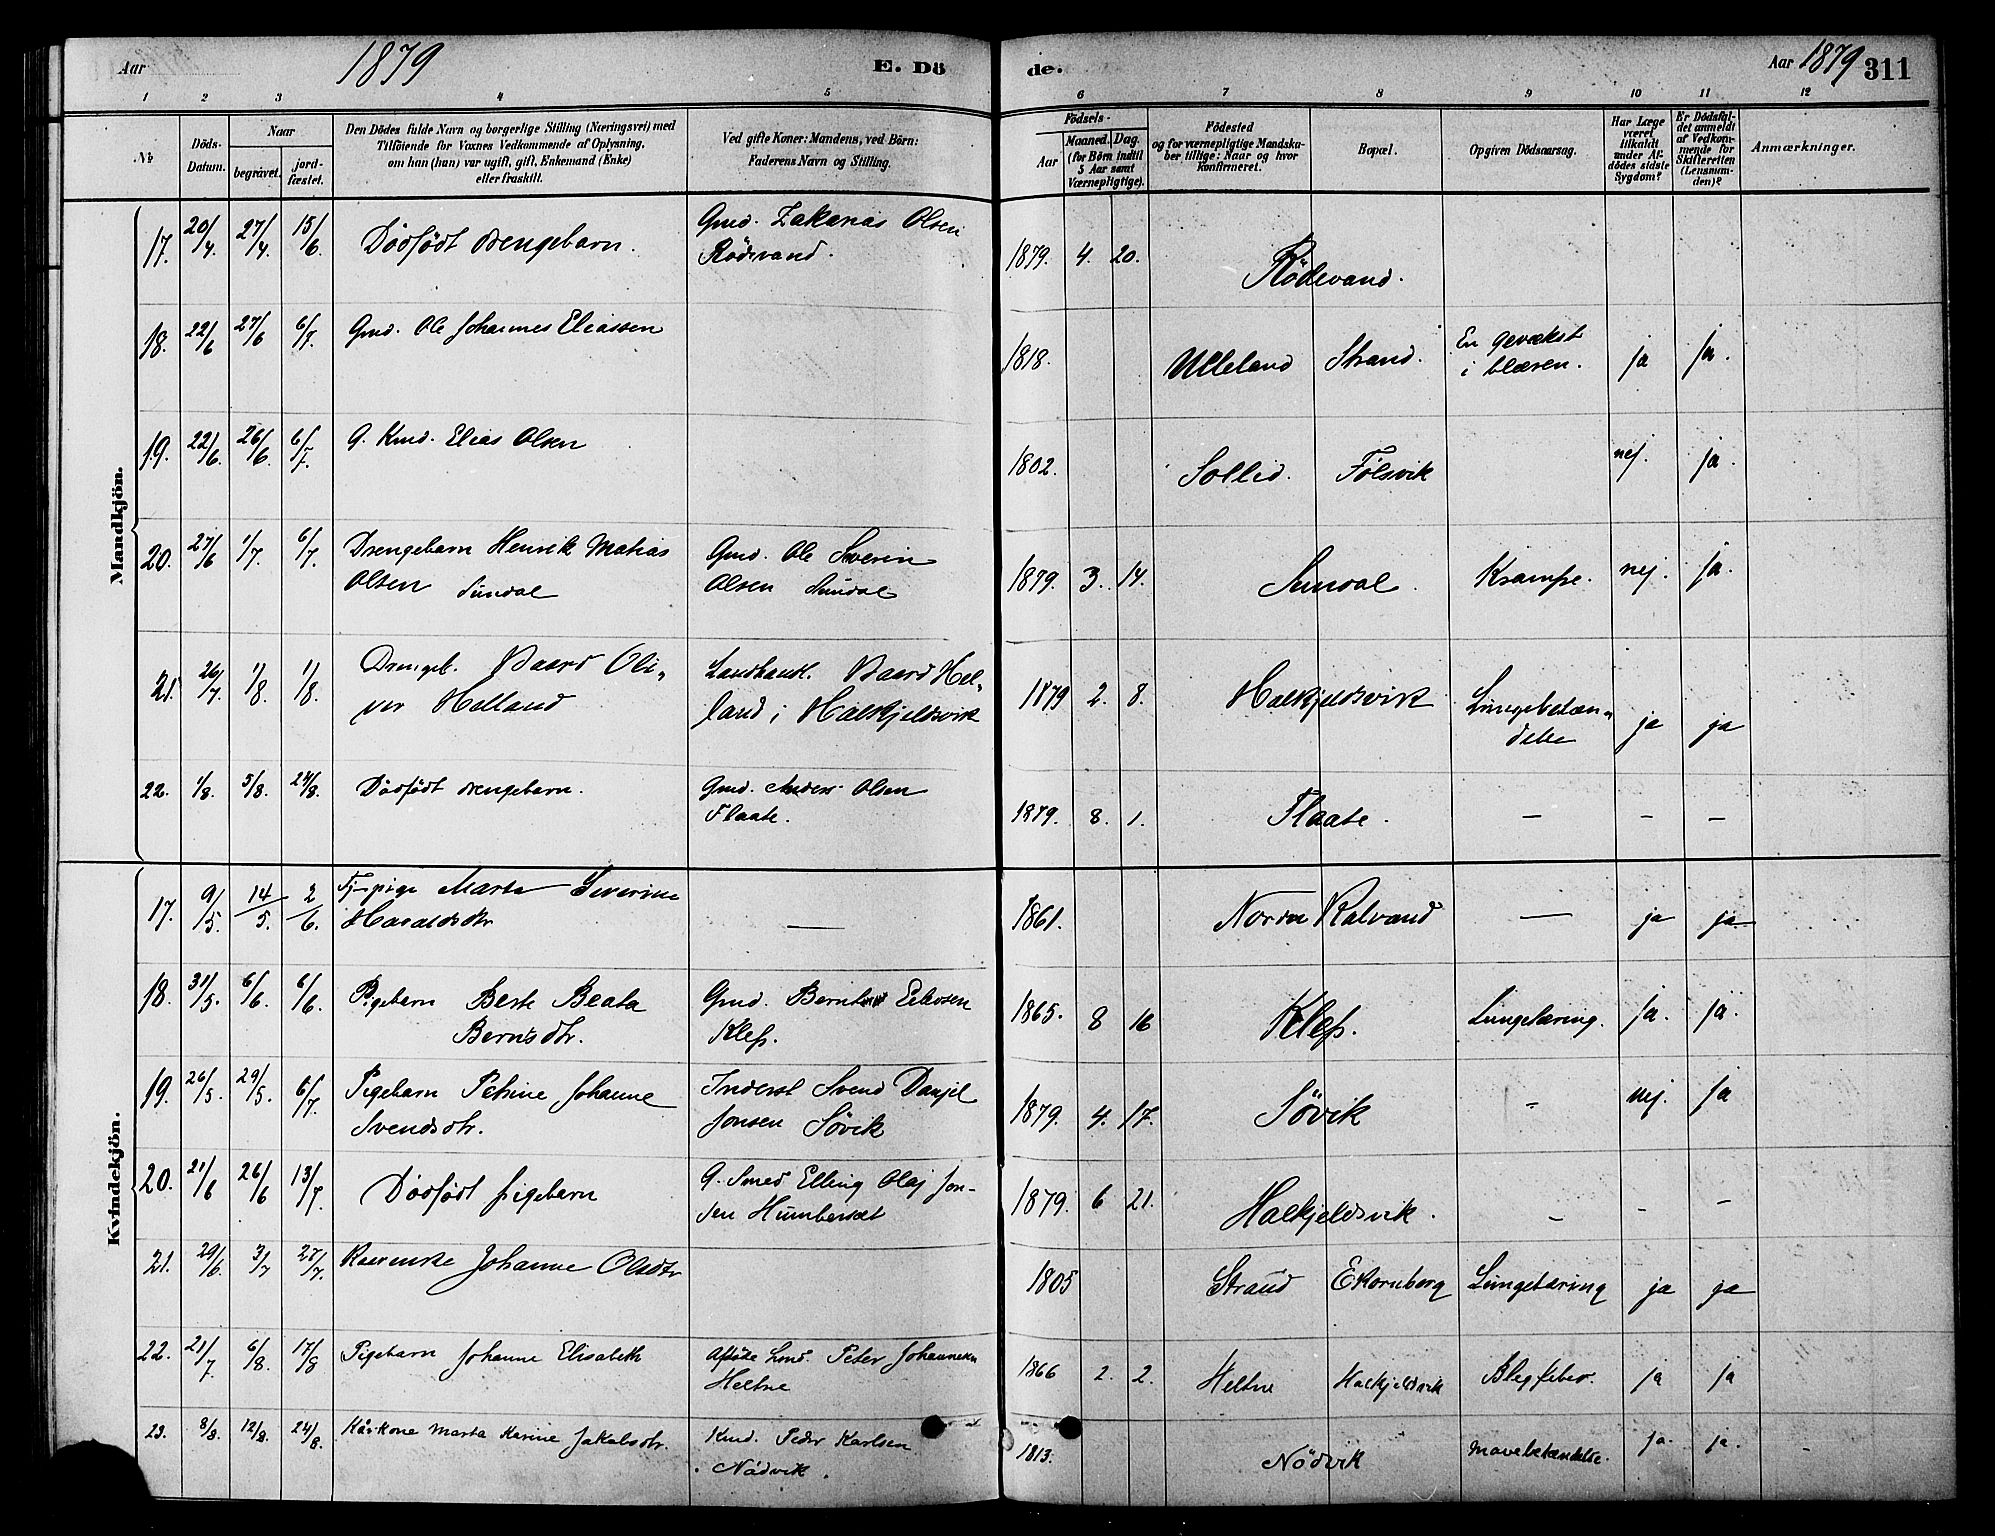 Aar 1879 E. Dö de. Aar 1879 311
1 2 3 4 5 6 7 8 9 10 11 12
№ Döds-Datum. Naar begravet. jord-fæstet.
Den Dödes fulde Navn og borgerlige Stilling (Næringsvei) med
Tilföiende for Voxnes Vedkommende af Oplysning,
om han (hun) var ugift, gift, Enkemand (Enke)
eller fraskilt.
Ved gifte Koner: Mandens, ved Börn:
Faderens Navn og Stilling.
Födsels-
Aar Maaned. Dag.
(for Börn indtil
5 Aar samt
Værnepligtige).
Födested
og for værnepligtige Mandska-
ber tillige: Naar og hvor
konfirmeret.
Bopæl.
Opgiven Dödsaarsag.
Har Læge
været
tilkaldt
under Af-
dödes sidste
Sygdom?
Er Dödsfal-
det anmeldt
af Vedkom-
mende for
Skifteretten
(Lensman-
den)?
Anmærkninger.
Mandkjön.
17. 20/4 27/4. 15/6. Dödfödt drengebarn. Gmd. Zakarias Olsen
Rödevand. 1879. 4. 20. Rödevand.
18. 22/6 27/6 6/7. Gmd. Ole Johannes Eliassen 1818. Ulleland Strand. En gevækst
i blæren. ja ja.
19. 22/6. 26/6. 6/7. G. Kmd. Elias Olsen 1802. Sollid. Fölsvik nej. ja.
20. 27/6 1/7. 6/7. Drengebarn Henrik Matias
Olsen Sundal Gmd. Ole Severin
Olsen Sundal 1879. 3. 14. Sundal. Krampe. nej. ja.
21. 26/7. 1/8. 1/8. Drengeb. Baard Oli-
ver Helland Landhandl. Baard Hel-
land i Halkjeldsvik 1879 2. 8. Halkjeldsvik Lungebetæn-
delse ja ja
22. 1/8. 5/8. 24/8. Dödfödt drengebarn. Gmd. Anders Olsen
Flaate. 1879. 8. 1. Flaate. — — —
Kvindekjön.
17. 9/5. 14/5. 2/6. Tj-pige Marta Severine
Haraldsdtr — 1861. Nordre Kalvand — ja ja
18. 31/5. 6/6. 6/6. Pigebarn Berte Beata
Berntsdtr. Gmd. Bernt Eliassen
Klep. 1865. 8 16 Klep. Lungetæring. ja. ja.
19. 26/5. 29/5. 6/7. Pigebarn Petrine Johanne
Svendsdtr. Inderst Svend Danjel
Jonsen Sövik 1879. 4. 17. Sövik - nej. ja
20. 21/6 26/6 13/7 Dödfödt pigebarn G. Smed Elling Olaj Jon-
sen Humberset 1879. 6 21. Halkjeldsvik. — — —
21. 29/6. 3/7 27/7. Kaarenke Johanne Olsdtr 1805 Strand Ekornberg Lungetæring ja ja
22. 21/7 6/8. 17/8 Pigebarn Johanne Elisabeth Afdöde Lmd. Peter Johannesen
Heltne 1866 2. 2. Heltne Halkjeldsvik Blegfeber. ja ja
23. 8/8. 12/8. 24/8. Kårkone Marta Karine Jakobsdtr. Kmd. Peder Karlsen
Nödvik. 1813. Nödvik Mavebetændelse. ja. ja. -